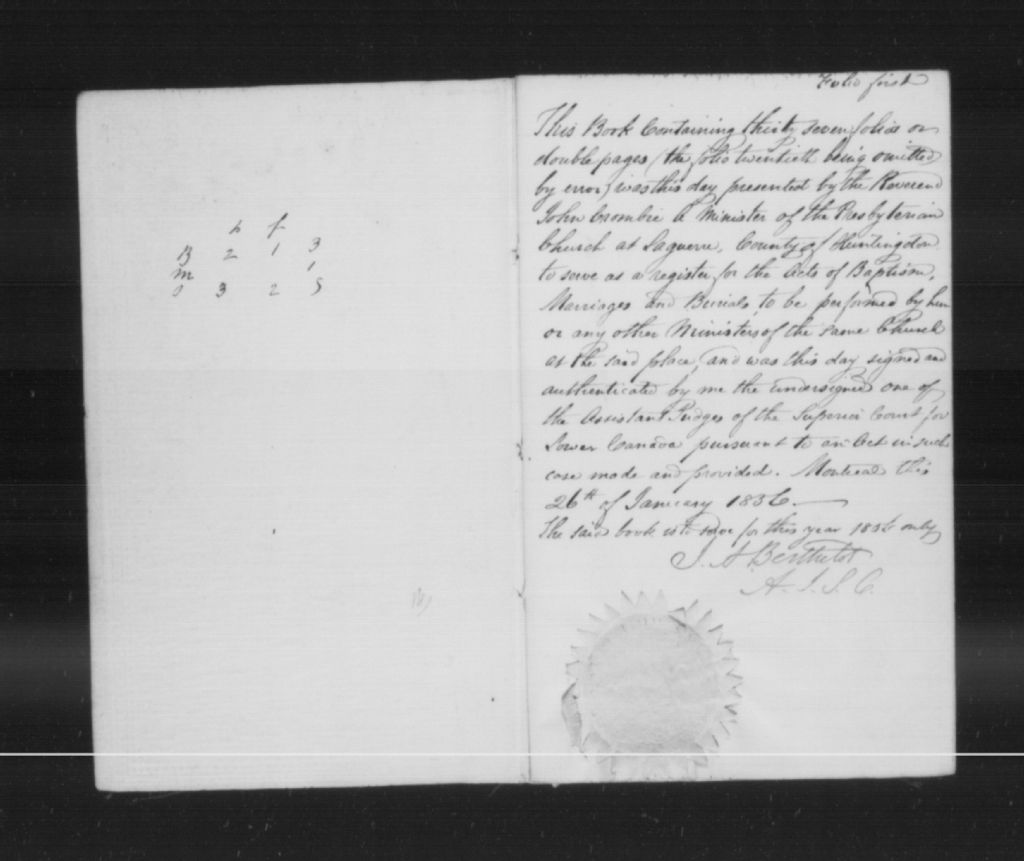 h f
B 2 1 3
m 1
S 3 2 5
Folio first
This Book Containing thirty seven folios or
double pages (the folio twentieth being omitted
by error) was this day presented by the Reverend
John Crombie a Minister of the Presbyterian
Church at Laguerre, County of Huntingdon
to serve as a register for the Acts of Baptism,
Marriages and Burials, to be performed by him
or any other Ministers of the same Church
at the said place, and was this day signed and
authenticated by me the undersigned one of
the Assistant Judges of the Superior Court for
Lower Canada pursuant to an Act in such
case made and provided. Montreal this
26th of January 1856.
The said book is to serve for this year 1856 only
J. A. Berthelot
A. J. S. C.